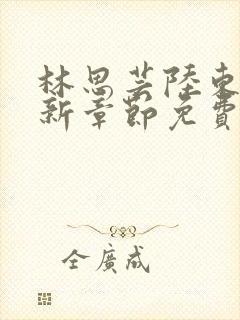 林思芸陸東
新章節免費
全廣成